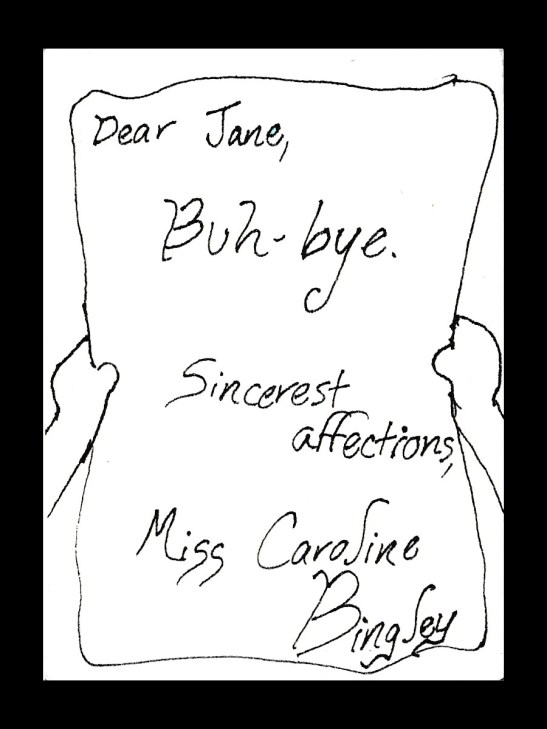 Dear Jane,
Buh-bye.
Sincerest
affections,
Miss Caroline
Bingley